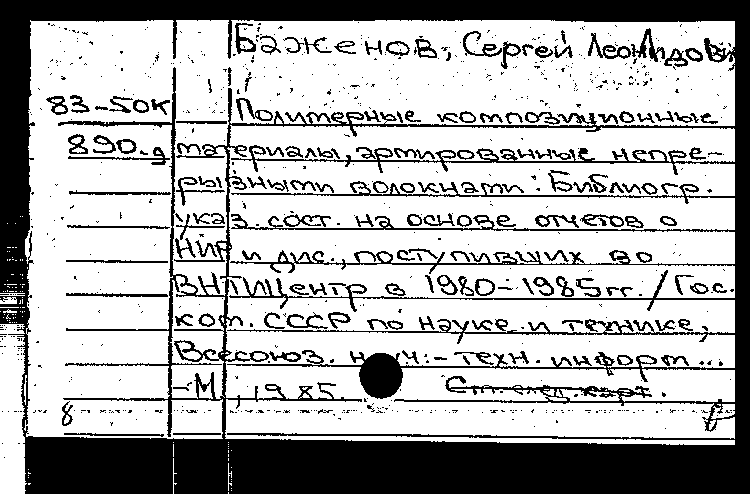 Баженов, Сергей Леонидович
83-50К Полимерные композиционные
890.д материалы, армированные непре-
рывными волокнами: Библиогр.
указ. сост. на основе отчетов о
НИР и дис., поступивших во
ВНТИЦентр в 1980-1985гг. / Гос.
ком. СССР по науке и технике,
Всесоюз. науч.-техн. информ...
-М, 1985. См. след. карт.
8